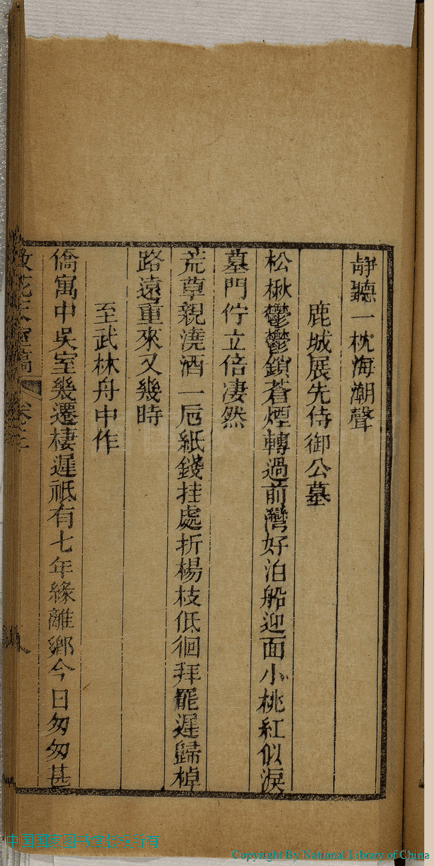 靜聽一枕海潮聲
鹿城展先侍御公墓
松楸鬱鬱鎖蒼煙轉過前灣好泊船迎面小桃紅似淚
墓門佇立倍凄然
荒草親澆酒一卮紙錢挂處折楊枝低徊拜罷遲歸棹
路遠重來又幾時
至武林舟中作
僑寓中吳室幾遷棲遲祇有七年緣離鄉今日匆匆甚
Copyright by National Library of China